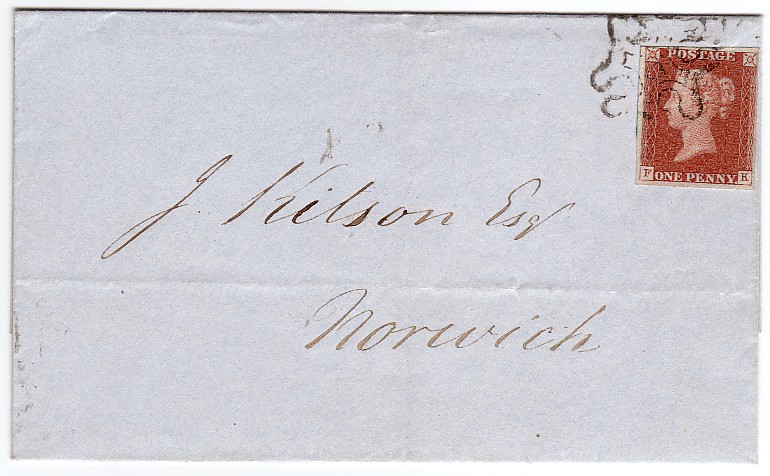 POSTAGE
F ONE PENNY K
J. Kitson Esqr
Norwich